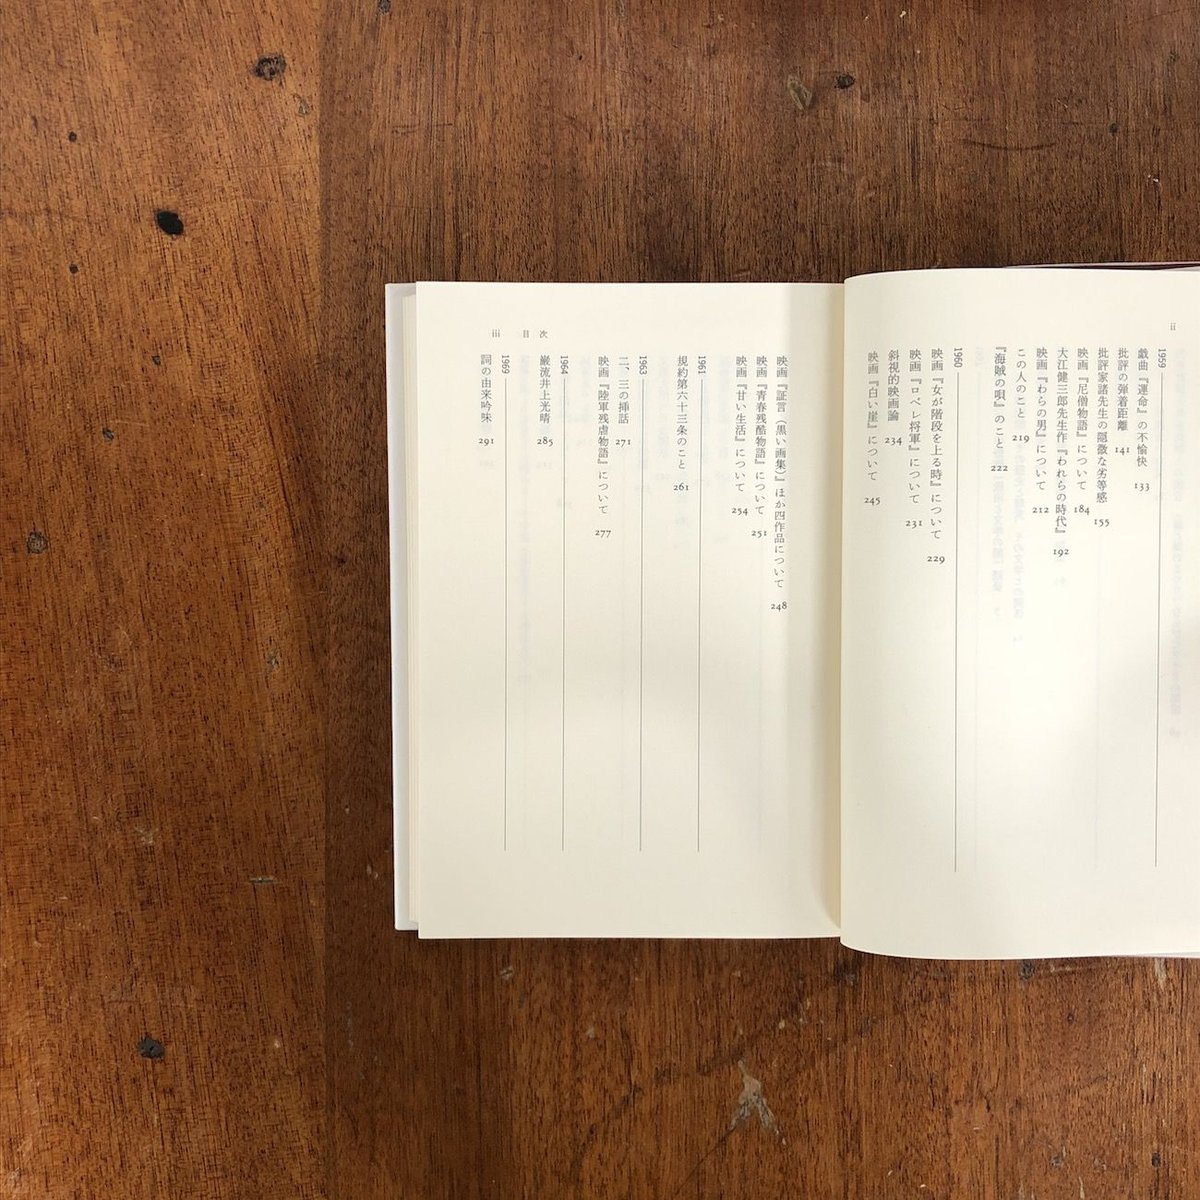 ii
1959
戯曲『運命』の不愉快 133
批評の弾着距離 141
批評家諸先生の隠微な劣等感 155
映画『尼僧物語』について 184
大江健三郎先生作『われらの時代』 192
映画『わらの男』について 212
この人のこと 219
『海賊の唄』のこと 222
1960
映画『女が階段を上る時』について 229
映画『ロベレ将軍』について 231
斜視的映画論 234
映画『白い崖』について 245
映画『証言（黒い画集）』ほか四作品について 248
映画『青春残酷物語』について 251
映画『甘い生活』について 254
1961
規約第六十三条のこと 261
1963
二、三の挿話 271
映画『陸軍残虐物語』について 277
1964
巌流井上光晴 285
1969
詞の由来吟味 291
iii 目次